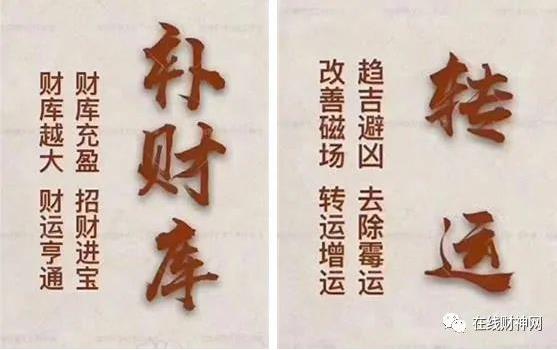 补财库
财库充盈 招财进宝
财库越大 财运亨通
转运
趋吉避凶 去除霉运
改善磁场 转运增运
在线财神网